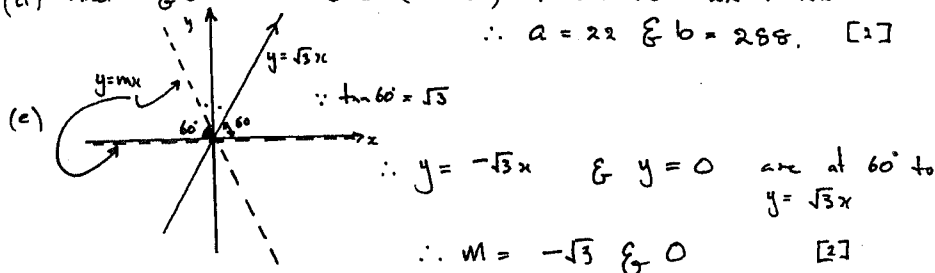 ∴ a = 22 & b = 288. [2]
y
y = √3x
y=mx
∵ tan 60° = √3
(e)
60°
60
x
∴ y = -√3x & y = 0 are at 60° to
y = √3x
∴ m = -√3 & 0 [2]